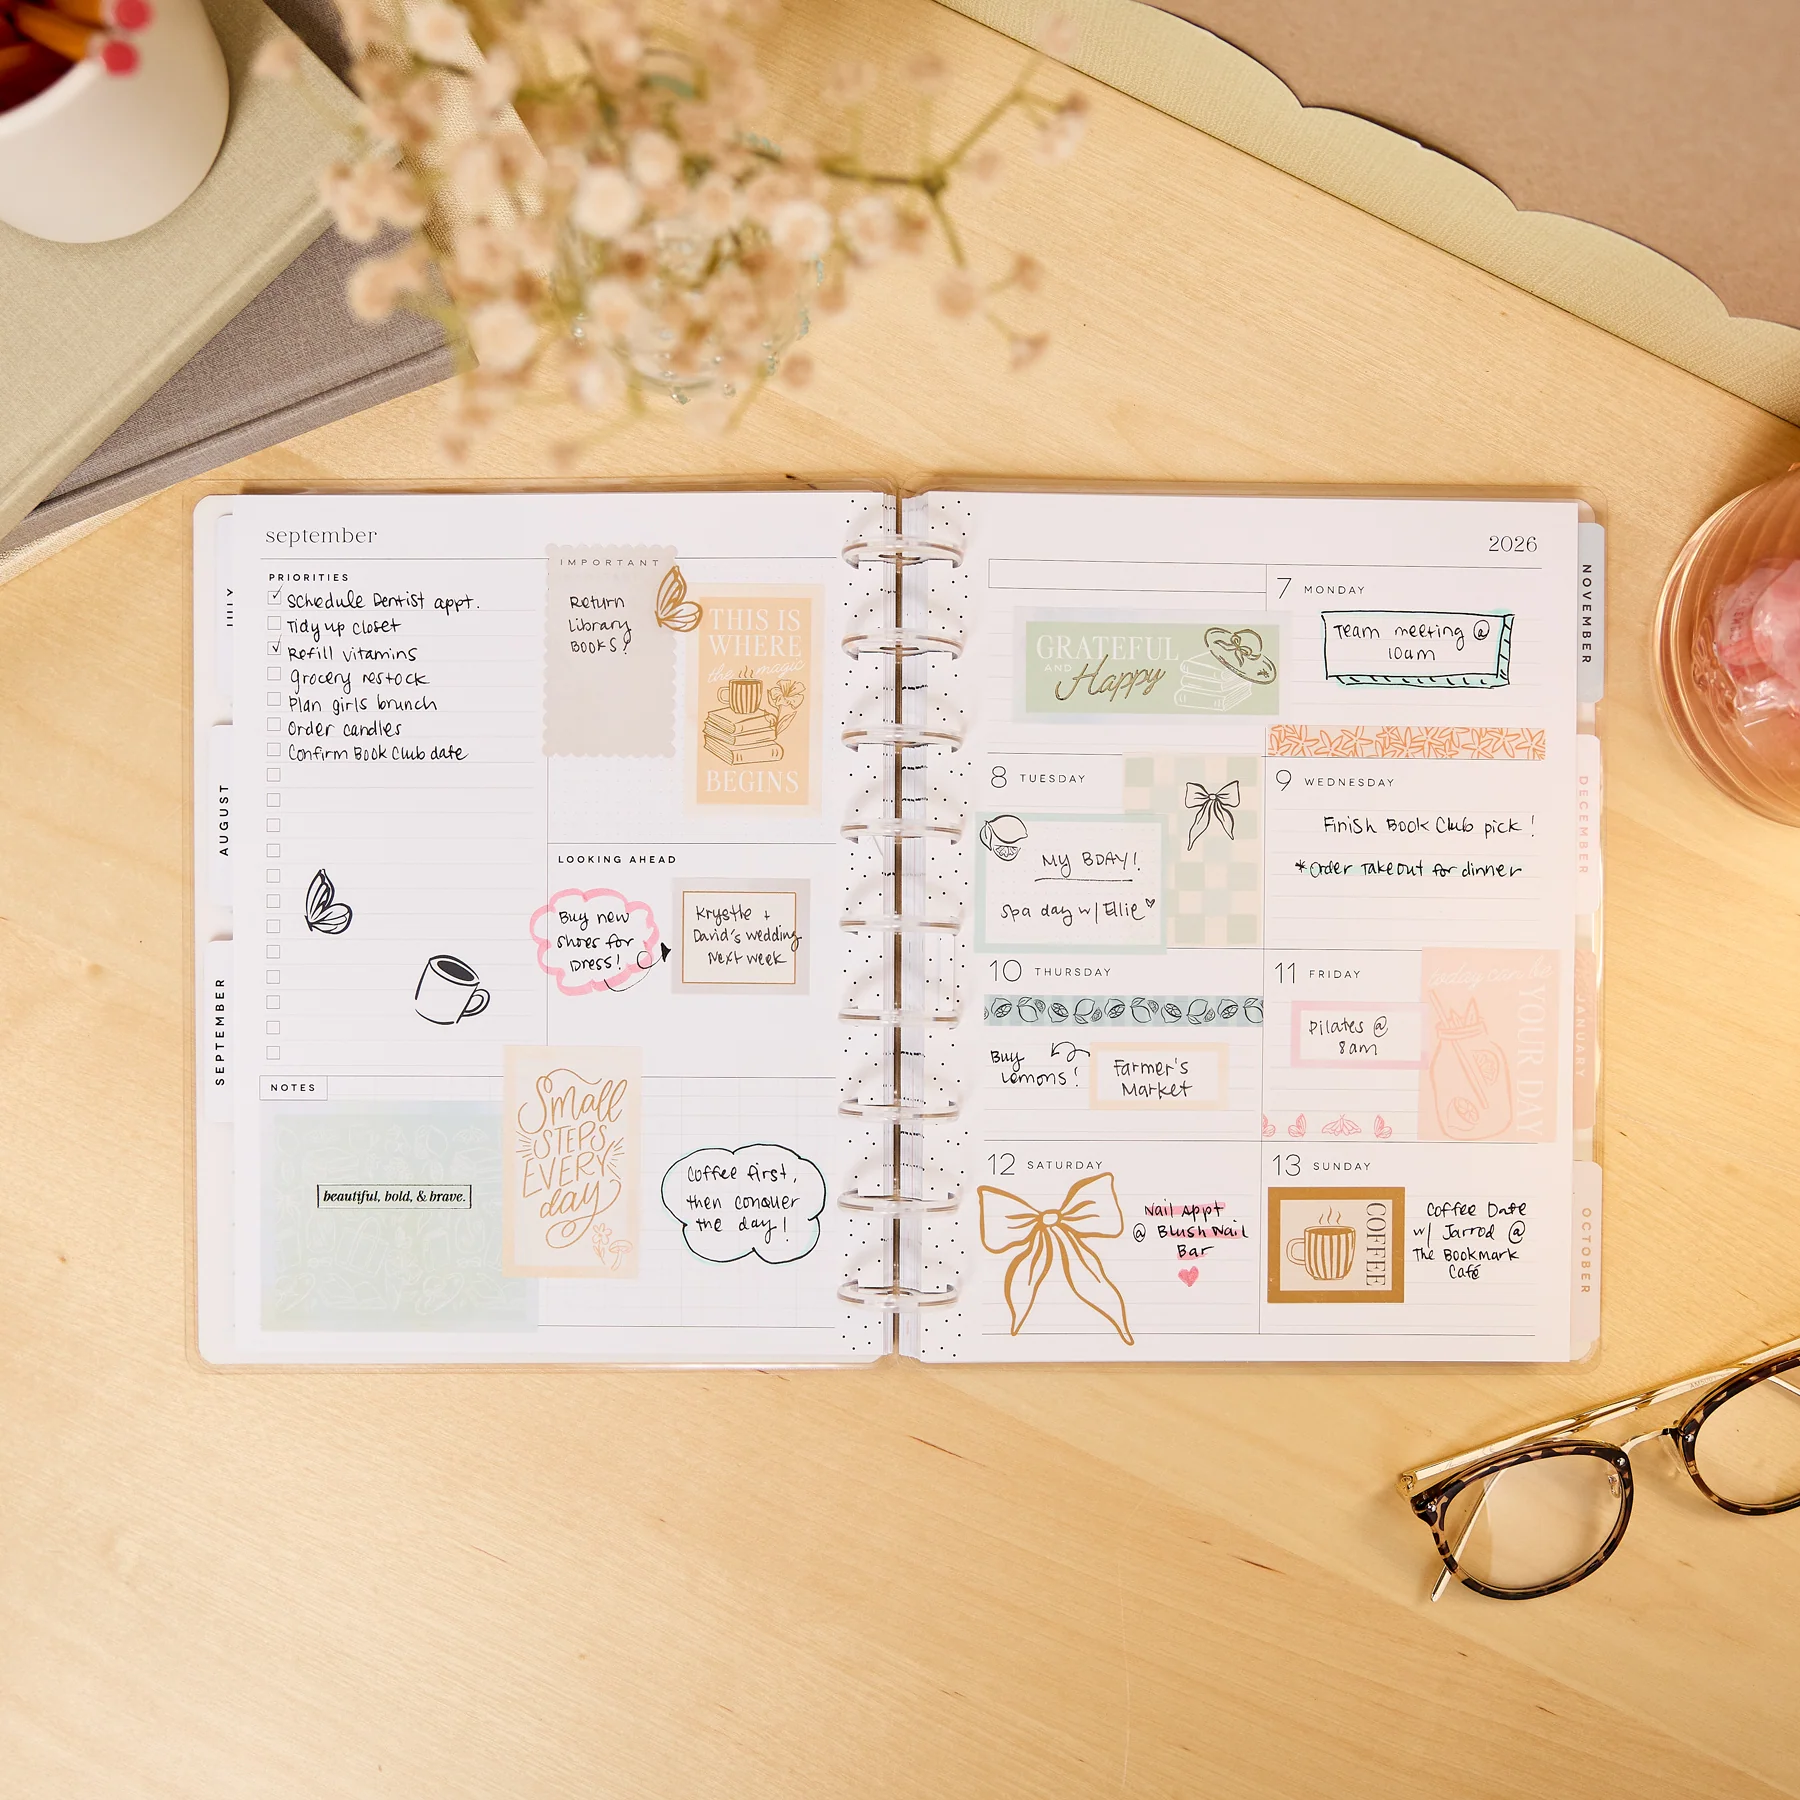 september
PRIORITIES
Schedule Dentist appt.
Tidy up closet
Refill vitamins
Grocery restock
Plan girls brunch
Order candles
Confirm Book Club date
IMPORTANT
Return
Library
BOOKS!
THIS IS
WHERE
the magic
BEGINS
LOOKING AHEAD
Buy new
shoes for
Dress!
Krystle +
David's wedding
Next week
NOTES
beautiful, bold, & brave.
Small
STEPS
EVERY
day
Coffee first,
then conquer
the day!
JULY
AUGUST
SEPTEMBER
2026
GRATEFUL
AND
Happy
7 MONDAY
Team meeting @
10am
8 TUESDAY
MY BDAY!
Spa day w/ Ellie
9 WEDNESDAY
Finish Book Club pick!
*Order Takeout for dinner
10 THURSDAY
Buy
Lemons!
Farmer's
Market
11 FRIDAY
Pilates @
8am
YOUR DAY
12 SATURDAY
Nail Appt
@ Blush Nail
Bar
13 SUNDAY
COFFEE
Coffee Date
w/ Jarrod @
The Bookmark
Café
NOVEMBER
DECEMBER
JANUARY
OCTOBER